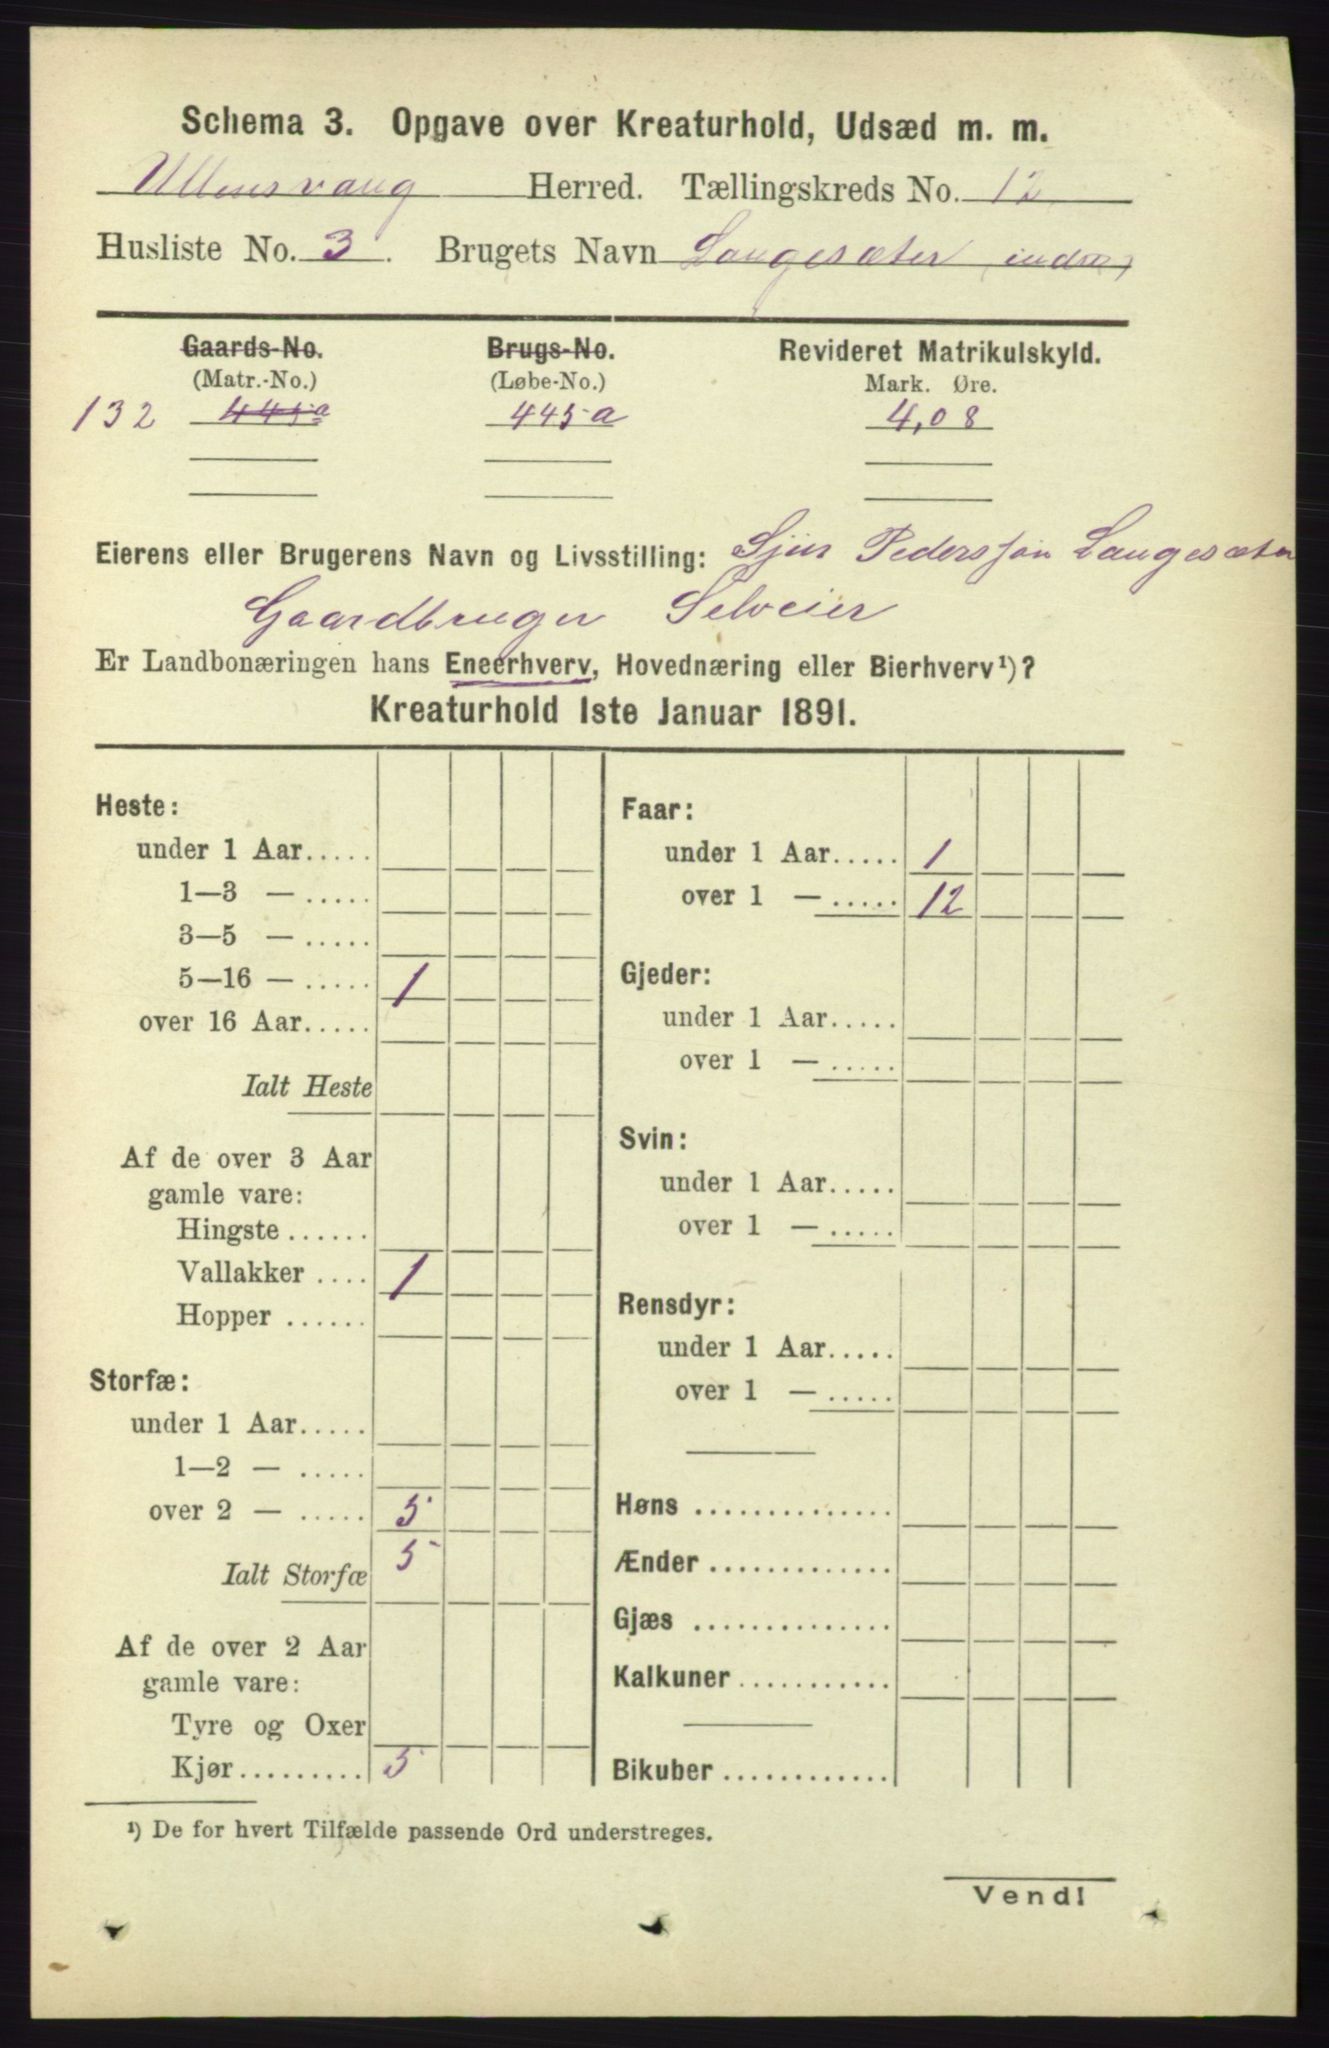 Schema 3. Opgave over Kreaturhold, Udsæd m. m.
Ullensvang Herred. Tællingskreds No. 12
Husliste No. 3. Brugets Navn Langesæter, indre,
Gaards-No. Brugs-No. Revideret Matrikulskyld.
(Matr.-No.) (Løbe-No.) Mark. Øre.
132 445a 445a 4,08
Eierens eller Brugerens Navn og Livsstilling: Sjur Pederssøn Langesæter
Gaardbruger Selveier
Er Landbonæringen hans Eneerhverv, Hovednæring eller Bierhverv¹)?
Kreaturhold 1ste Januar 1891.
Heste:
under 1 Aar.....
1—3 — .....
3—5 — .....
5—16 — ..... 1
over 16 Aar.....
Ialt Heste
Af de over 3 Aar
gamle vare:
Hingste ......
Vallakker .... 1
Hopper ......
Storfæ:
under 1 Aar.....
1—2 — .....
over 2 — ..... 5
Ialt Storfæ 5
Af de over 2 Aar
gamle vare:
Tyre og Oxer
Kjør......... 5
Faar:
under 1 Aar..... 1
over 1 — ..... 12
Gjeder:
under 1 Aar.....
over 1 — .....
Svin:
under 1 Aar.....
over 1 — .....
Rensdyr:
under 1 Aar.....
over 1 — .....
Høns ..............
Ænder .............
Gjæs ..............
Kalkuner...........
Bikuber ............
¹) De for hvert Tilfælde passende Ord understreges.
Vend!